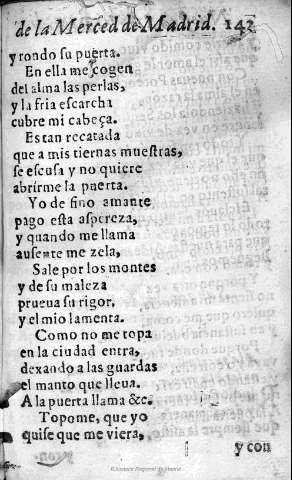 de la Merced de Madrid. 143
y rondo su puerta.
En ella me cogen
del alma las perlas,
y la fria escarcha
cubre mi cabeça.
Es tan recatada
que a mis tiernas muestras,
se escusa y no quiere
abrirme la puerta.
Yo de fino amante
pago esta aspereza,
y quando me llama
ausente me zela,
Sale por los montes
y de su maleza
prueua su rigor,
y el mio lamenta.
Como no me topa
en la ciudad entra,
dexando a las guardas
el manto que lleua.
A la puerta llama &c.
Topome, que yo
quise que me viera,
y con
Biblioteca Nacional de España